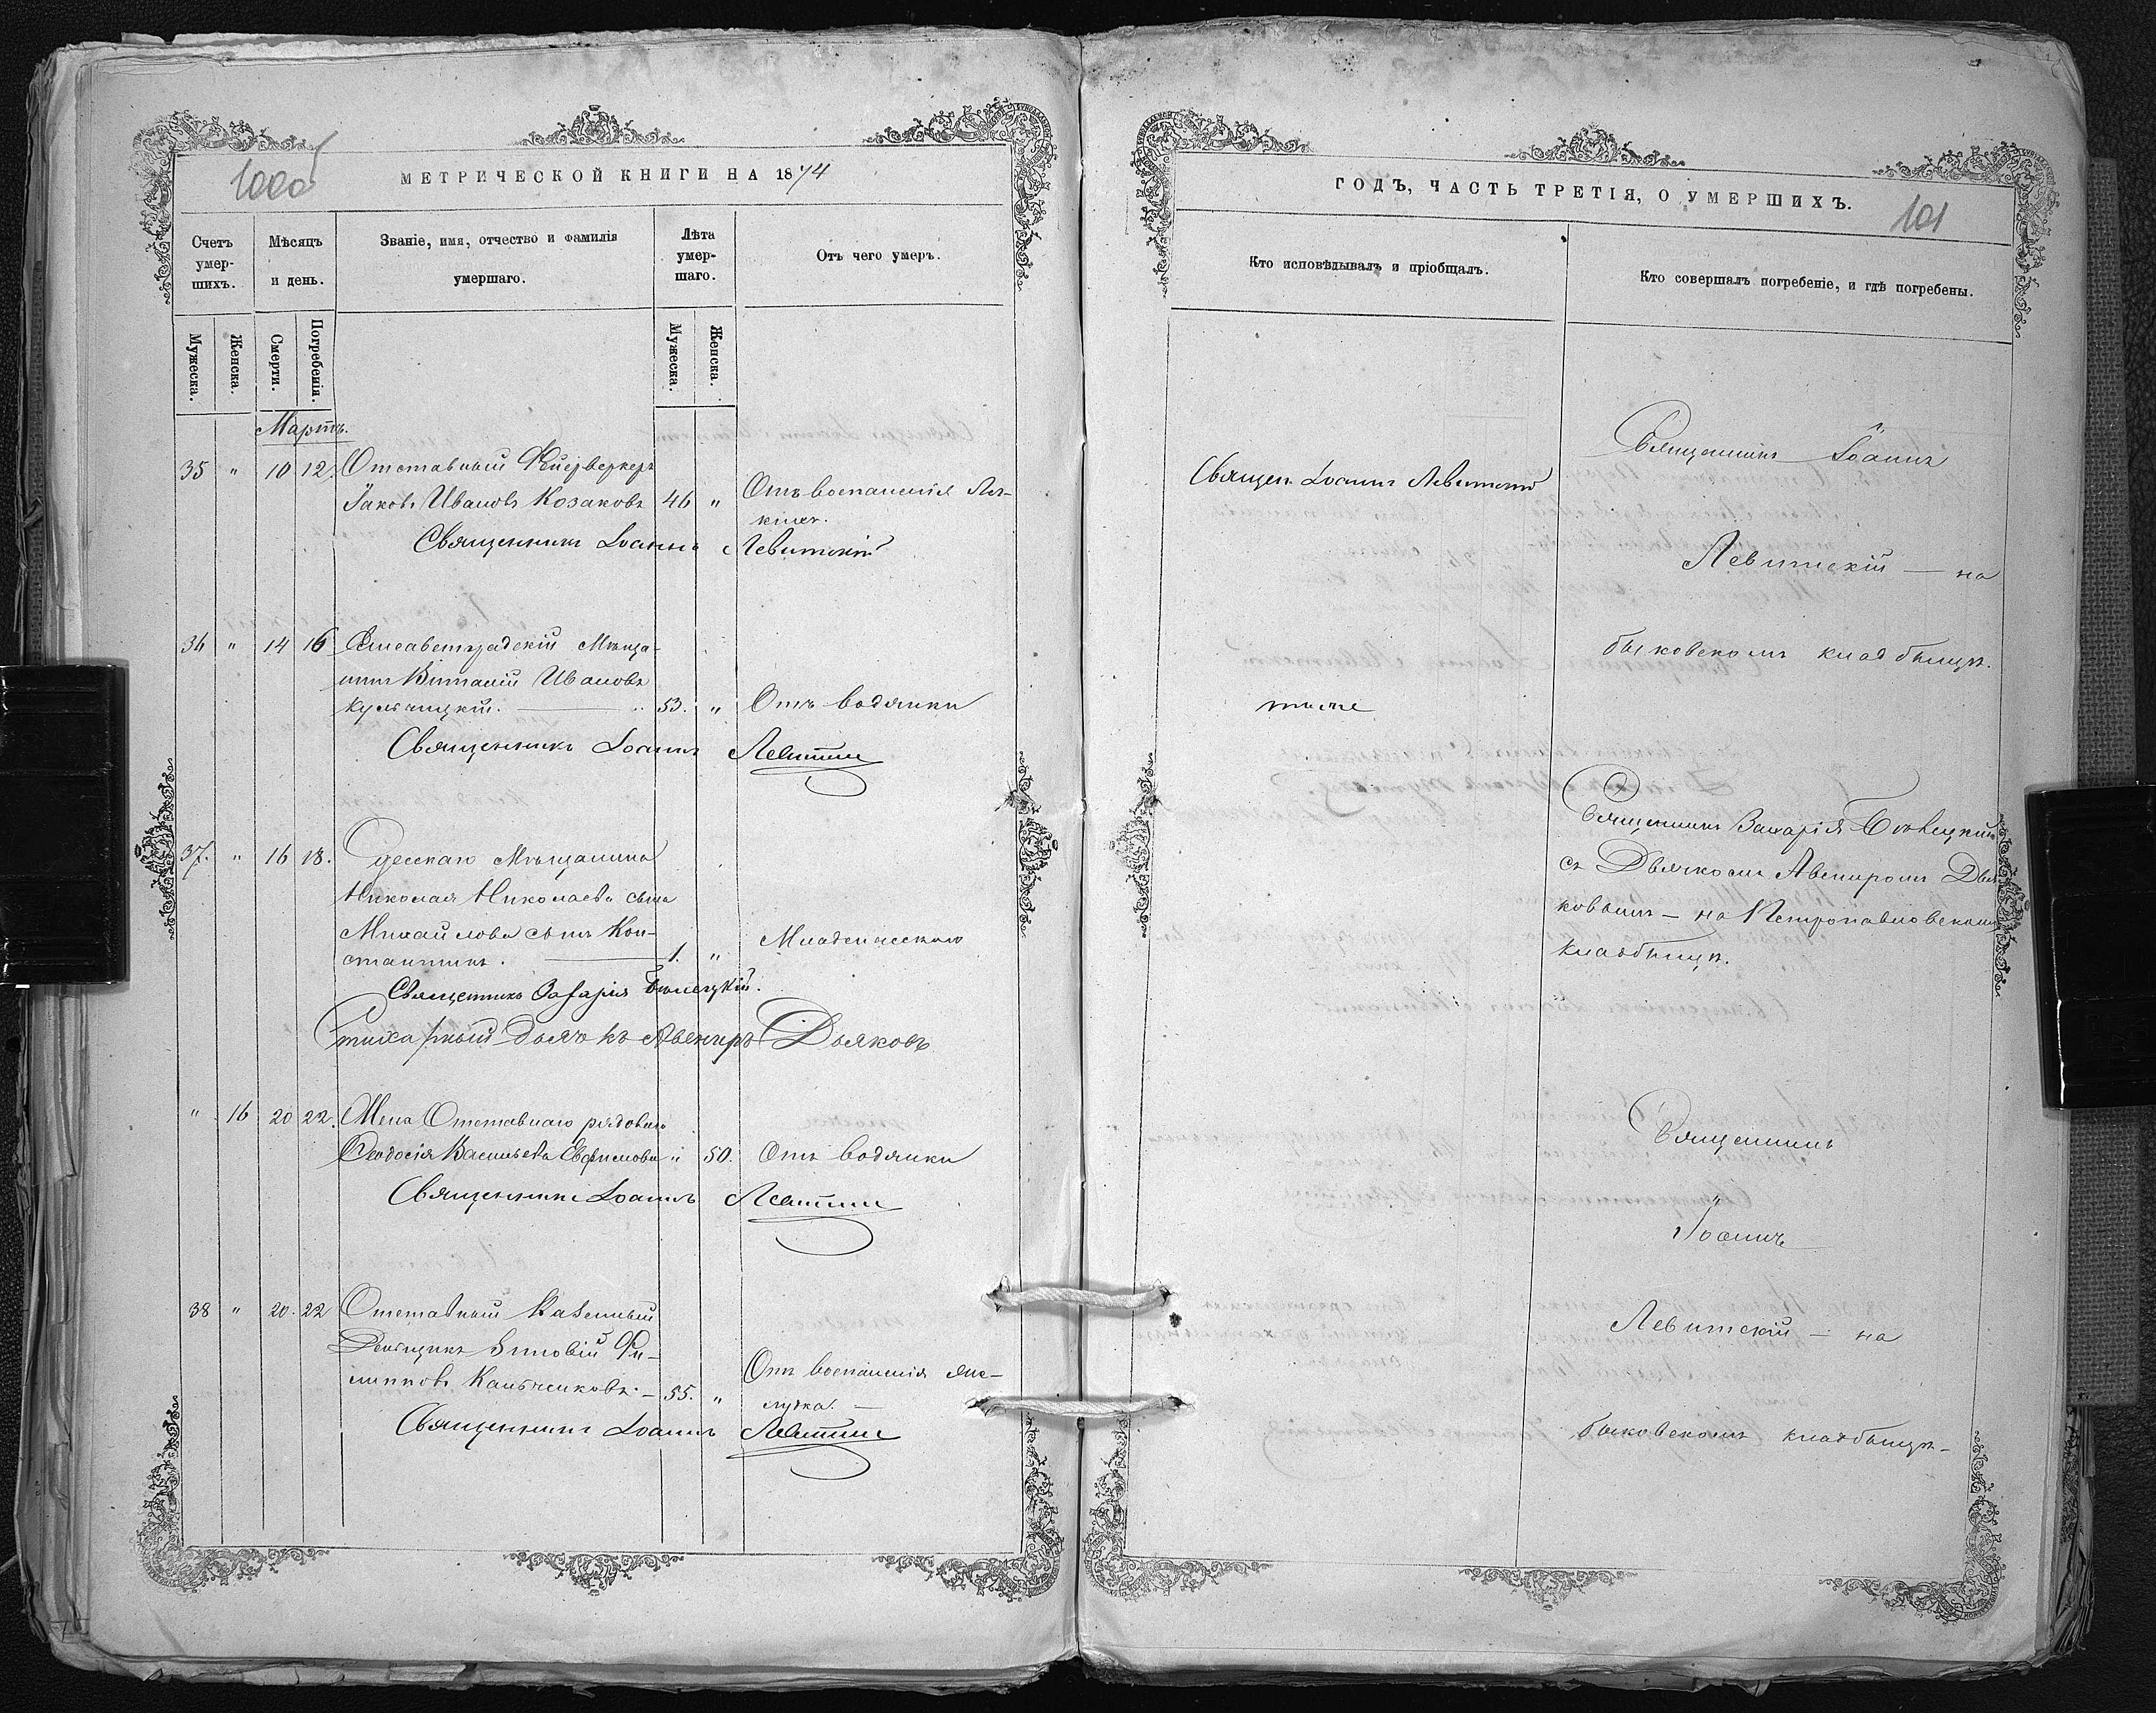 МЕТРИЧЕСКОЙ КНИГИ НА 1874
Счетъ умершихъ.
Мѣсяцъ и день.
Званіе, имя, отчество и фамилія умершаго.
Лѣта умершаго.
Отъ чего умеръ.
Мужеска.
Женска.
Смерти.
Погребенія.
Мужеска.
Женска.
Мартъ.
35 " 10 12. Отставный Фейерверкеръ
Іаковъ Ивановъ Козаковъ 46 " Отъ воспаленія Лег-
кихъ.
Священникъ Іоаннъ Левитскій
36 " 14 16 Елисаветградскій Мѣща-
нинъ Виталій Ивановъ
Кульчицкій. 53. " Отъ водянки
Священникъ Іоаннъ
37. " 16 18. Одесскаго Мѣщанина
Николая Николаева сына
Михайлова сынъ Кон-
стантинъ. 1. " Младенческаго
Священникъ Захарія Бѣлецкій.
Стихарный Дьячекъ Авениръ Дьяковъ
" 16 20 22. Жена Отставнаго рядоваго
Феодосія Васильева Евфимова " 50. Отъ водянки
Священникъ Іоаннъ
38 " 20. 22 Отставный Казенный
Денщикъ Зиновій Фи-
липповъ Кальченковъ. 55. " Отъ воспаленія же-
лудка.
Священникъ Іоаннъ
ГОДЪ, ЧАСТЬ ТРЕТІЯ, О УМЕРШИХЪ.
101
Кто исповѣдывалъ и пріобщалъ.
Кто совершалъ погребеніе, и гдѣ погребены.
Священ. Іоаннъ Левитскій
тоже
Священникъ Іоаннъ
Левитскій — на
быковскомъ кладбищѣ.
Священникъ Захарія Бѣлецкій
съ Дьячкомъ Авениромъ Дья-
ковымъ — на Петропавловскомъ
кладбищѣ.
Священникъ
Іоаннъ
Левитскій — на
быковскомъ кладбищѣ.